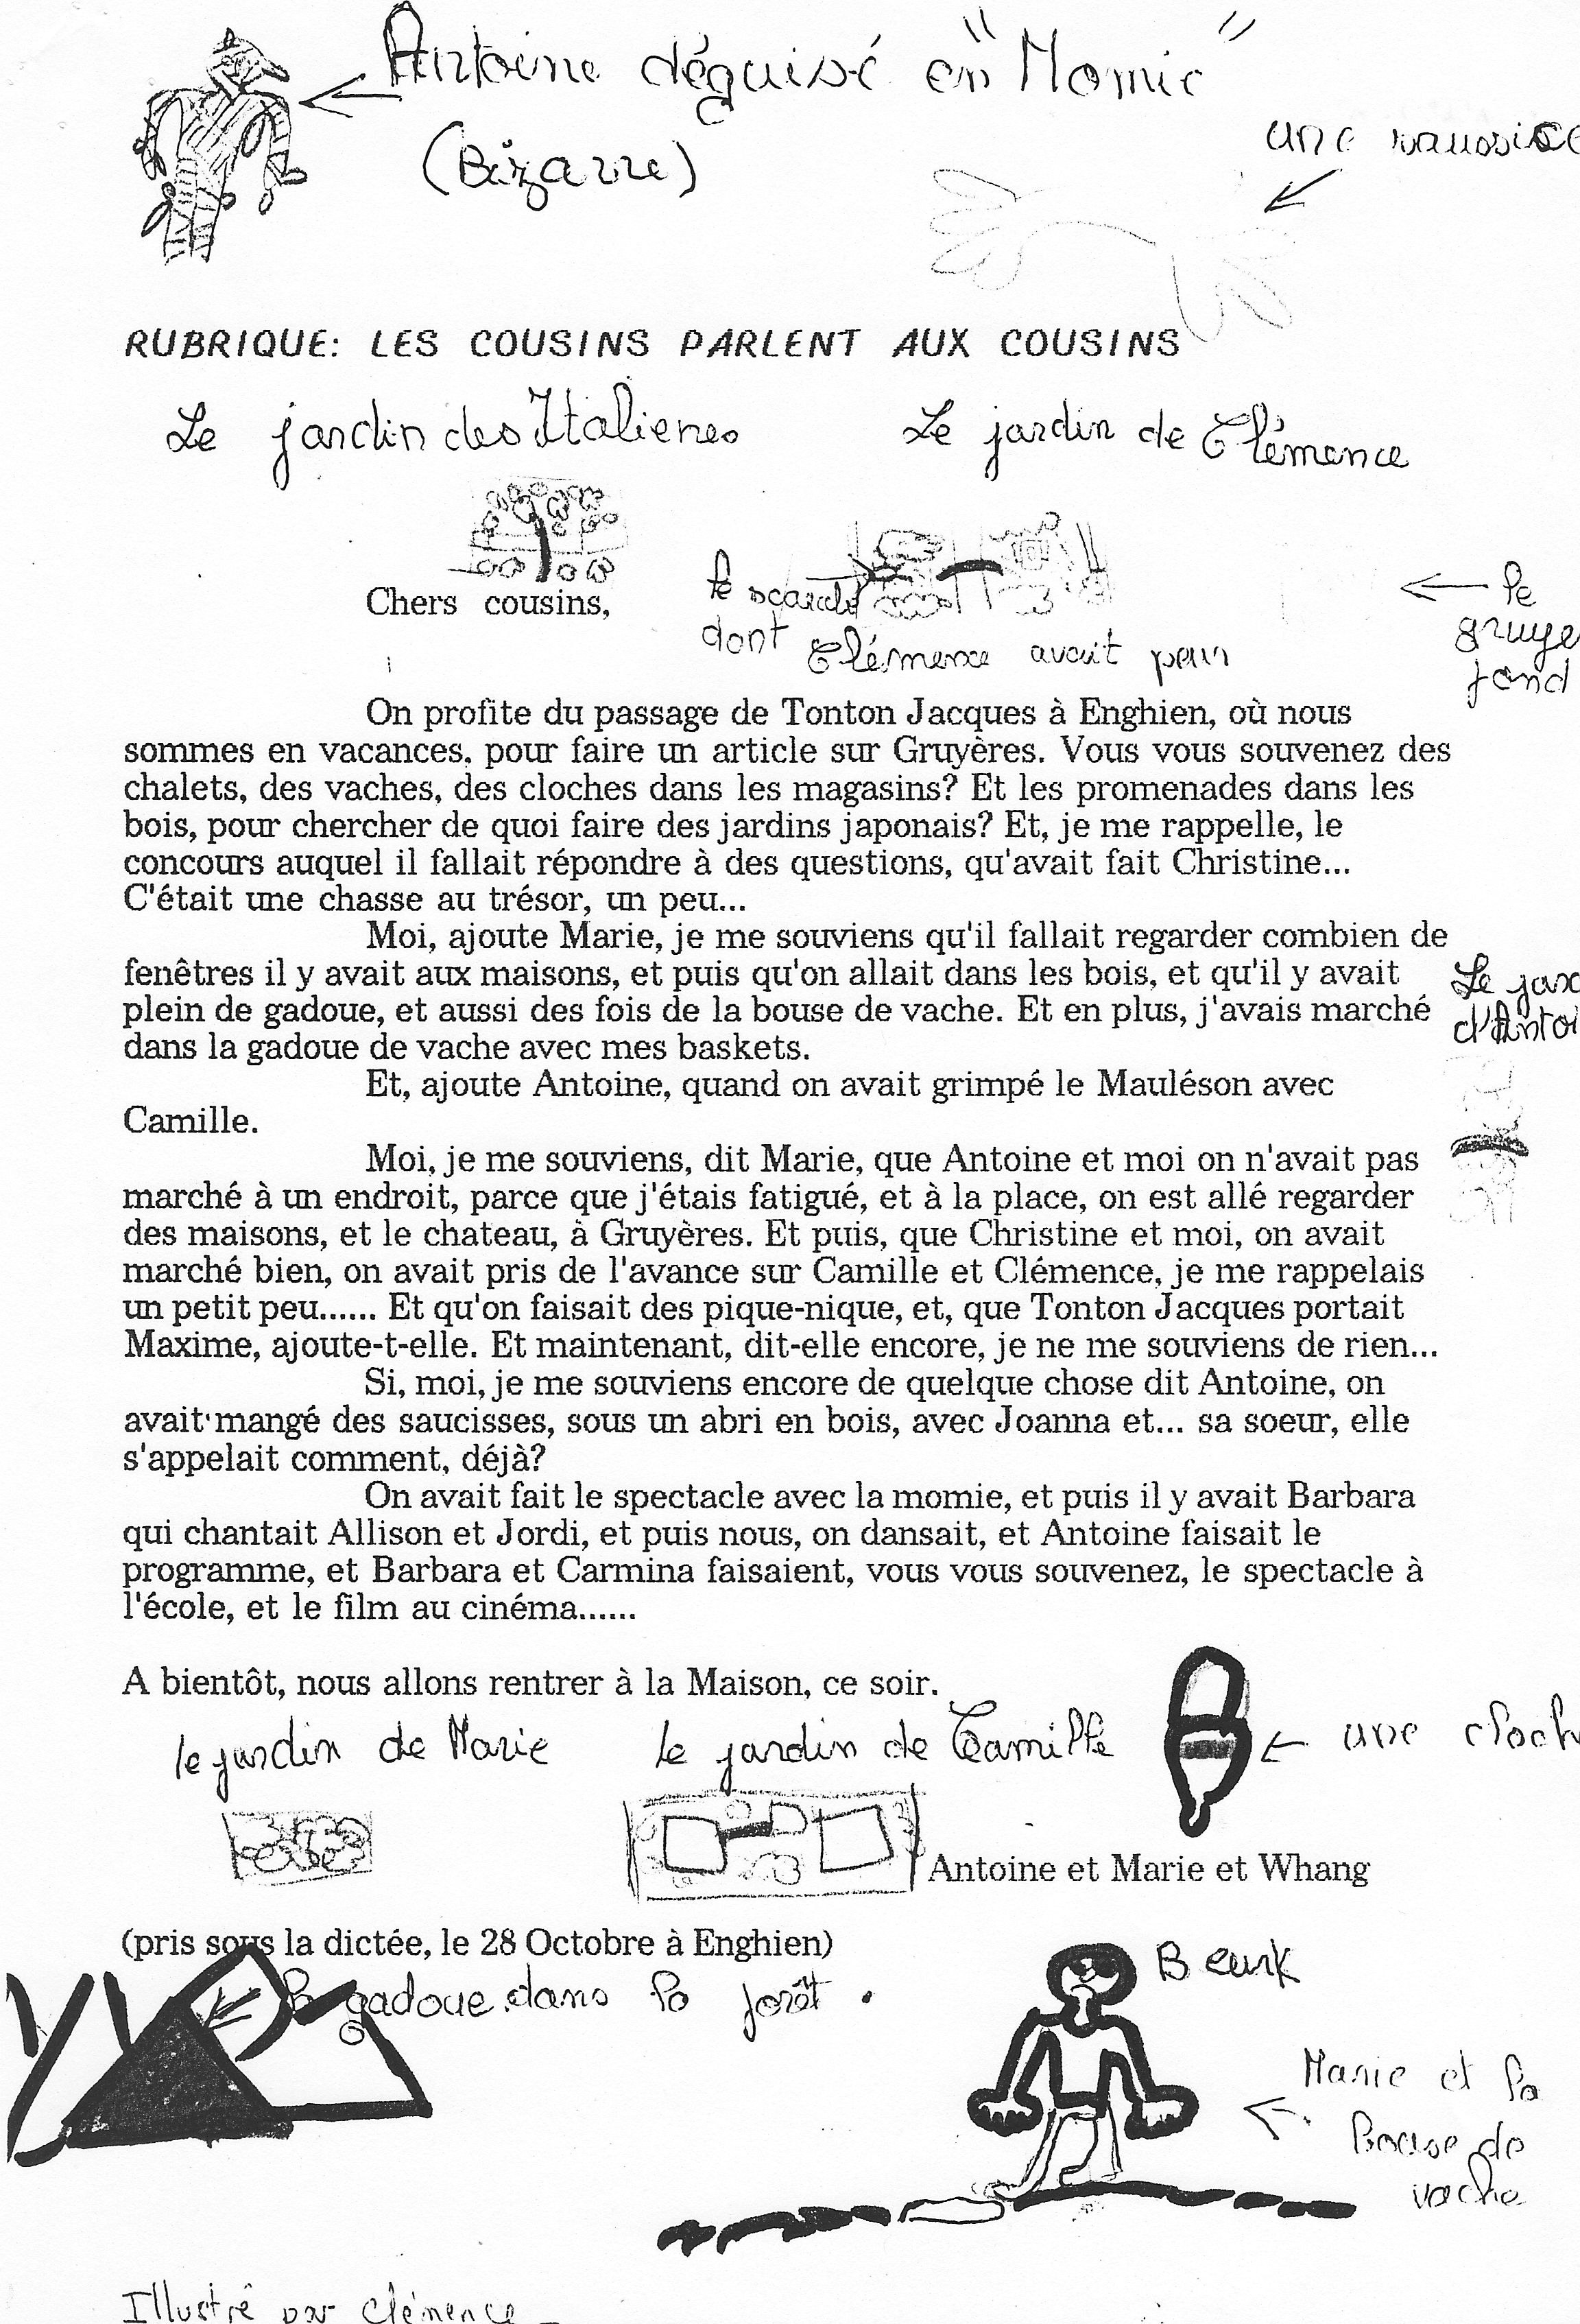 Antoine déguisé en "Momie"
(Bizarre)
une
RUBRIQUE: LES COUSINS PARLENT AUX COUSINS
Le jardin des Italienes
Le jardin de Clémence
Chers cousins,
le
dont Clémence avait peur
le
fond
On profite du passage de Tonton Jacques à Enghien, où nous
sommes en vacances, pour faire un article sur Gruyères. Vous vous souvenez des
chalets, des vaches, des cloches dans les magasins? Et les promenades dans les
bois, pour chercher de quoi faire des jardins japonais? Et, je me rappelle, le
concours auquel il fallait répondre à des questions, qu'avait fait Christine...
C'était une chasse au trésor, un peu...
Moi, ajoute Marie, je me souviens qu'il fallait regarder combien de
fenêtres il y avait aux maisons, et puis qu'on allait dans les bois, et qu'il y avait
plein de gadoue, et aussi des fois de la bouse de vache. Et en plus, j'avais marché
dans la gadoue de vache avec mes baskets.
Le
Et, ajoute Antoine, quand on avait grimpé le Mauléson avec
Camille.
Moi, je me souviens, dit Marie, que Antoine et moi on n'avait pas
marché à un endroit, parce que j'étais fatigué, et à la place, on est allé regarder
des maisons, et le chateau, à Gruyères. Et puis, que Christine et moi, on avait
marché bien, on avait pris de l'avance sur Camille et Clémence, je me rappelais
un petit peu...... Et qu'on faisait des pique-nique, et, que Tonton Jacques portait
Maxime, ajoute-t-elle. Et maintenant, dit-elle encore, je ne me souviens de rien...
Si, moi, je me souviens encore de quelque chose dit Antoine, on
avait mangé des saucisses, sous un abri en bois, avec Joanna et... sa soeur, elle
s'appelait comment, déjà?
On avait fait le spectacle avec la momie, et puis il y avait Barbara
qui chantait Allison et Jordi, et puis nous, on dansait, et Antoine faisait le
programme, et Barbara et Carmina faisaient, vous vous souvenez, le spectacle à
l'école, et le film au cinéma......
A bientôt, nous allons rentrer à la Maison, ce soir.
le jardin de Marie
le jardin de Camille
une
Antoine et Marie et Whang
(pris sous la dictée, le 28 Octobre à Enghien)
la gadoue dans la forêt.
Beurk
Marie et la
Bouse de
vache
Illustré par Clémence